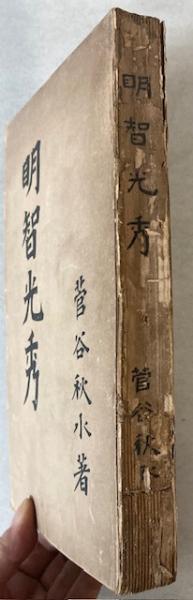 明智光秀
菅谷秋水著
明智光秀
菅谷秋水